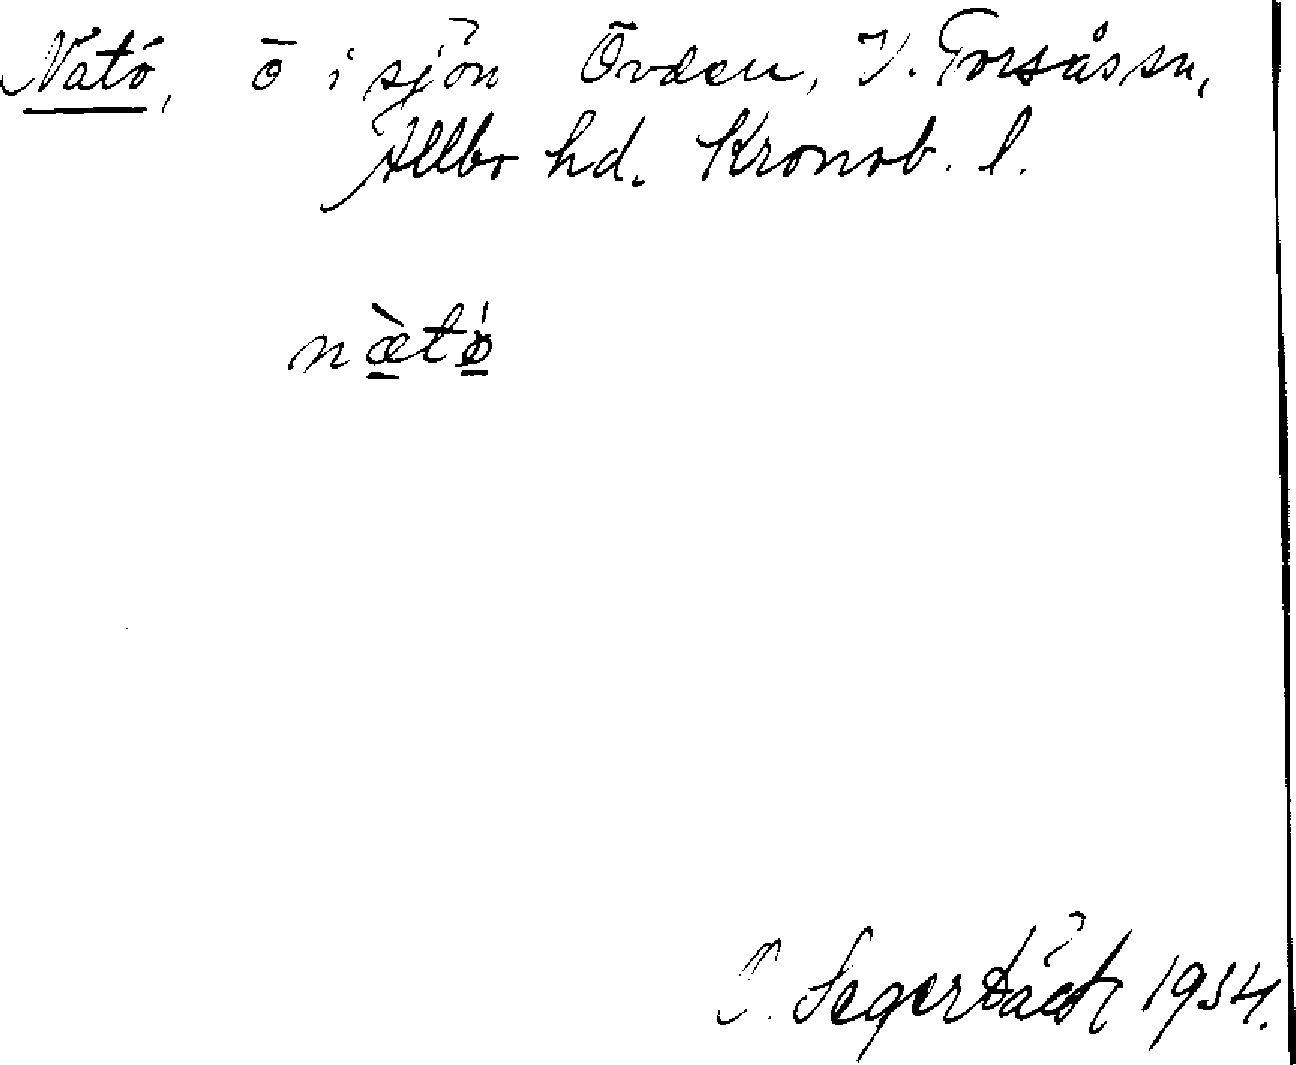 Natö, ö i sjön Övden, V. Torsås sn,
Allbo hd. Kronob. l.
næ̀tǿ
J. Segerbäck 1934.